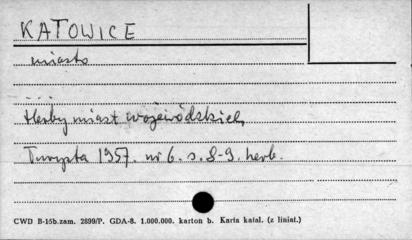 KATOWICE
miasto
...
Herby miast wojewódzkich
Turysta 1957. nr 6. s. 8-9. herb.
CWD B-15b.zam. 2899/P. GDA-8. 1.000.000. karton b. Karta katal. (z liniat.)